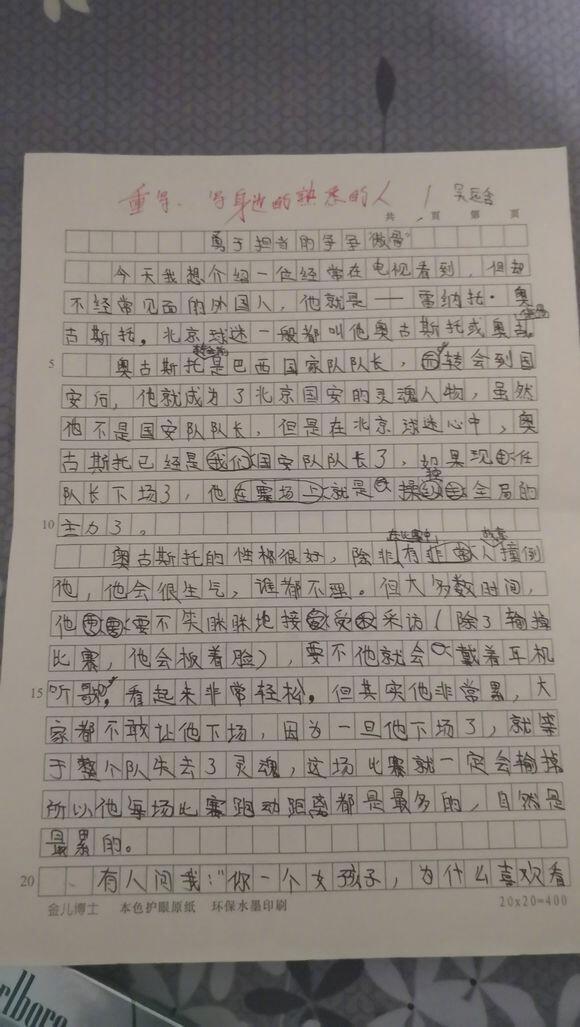 重写、写身边的熟悉的人
共 页 第 页
勇于担当的李军微哥"
今天我想介绍一位经常在电视看到，但却
不经常见面的外国人，他就是——雷纳托·奥
古斯托。北京球迷一般都叫他奥古斯托或奥古。
5 奥古斯托是巴西国家队队长，转会到国
安后，他就成为了北京国安的灵魂人物，虽然
他不是国安队队长，但是在北京球迷心中，奥
古斯托已经是我们国安队队长了，如果现任
队长下场了，他在赛场上就是操全局的
10 主力了。
在比赛中 故意
奥古斯托的性格很好，除非有非人撞倒
他，他会很生气，谁都不理。但大多数时间，
他要不笑眯眯地接受采访（除了输掉
比赛，他会板着脸），要不他就会戴着耳机
15 听歌，看起来非常轻松。但其实他非常累，大
家都不敢让他下场，因为一旦他下场了，就等
于整个队失去了灵魂，这场比赛就一定会输掉
所以他每场比赛跑动距离都是最多的，自然是
最累的。
20 、有人问我："你一个女孩子，为什么喜欢看
金儿博士 本色护眼原纸 环保水墨印刷 20x20=400
rlboro